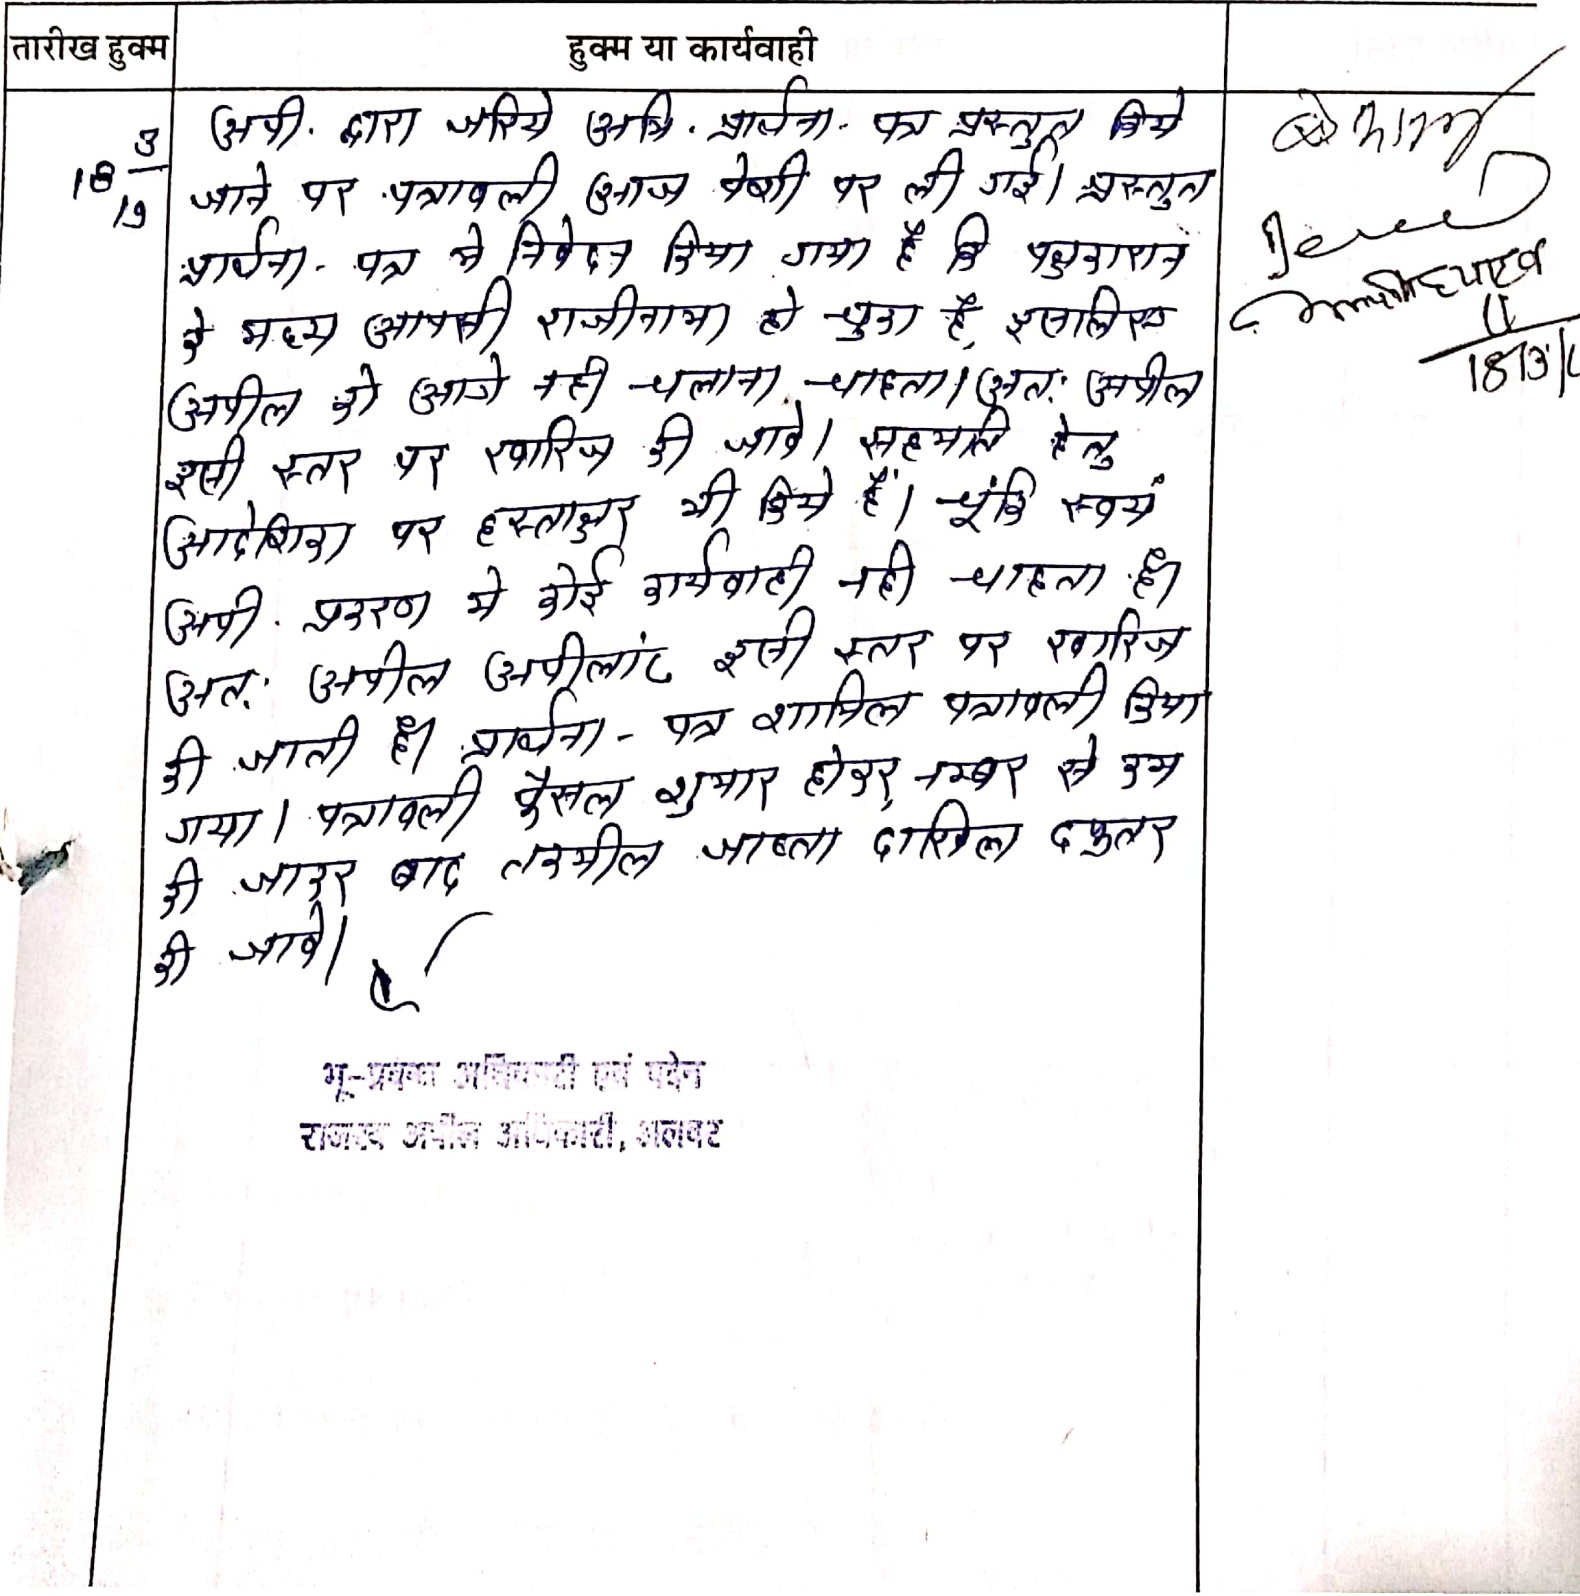 तारीख हुक्म
हुक्म या कार्यवाही
18 3/19
अपी. द्वारा जरिये अभि. प्रार्थना-पत्र प्रस्तुत किये
जाने पर पत्रावली आज पेशी पर ली गई। प्रस्तुत
प्रार्थना-पत्र मे निवेदन किया गया है कि पक्षकारान
के मध्य आपसी राजीनामा हो चुका है, इसलिए
अपील को आगे नही चलाना चाहता। अत: अपील
इसी स्तर पर खारिज की जावे। सहमति हेतु
आदेशिका पर हस्ताक्षर भी किये हैं। चूंकि स्वयं
अपी. प्रकरण मे कोई कार्यवाही नही चाहता है।
अत: अपील अपीलांट इसी स्तर पर खारिज
की जाती है। प्रार्थना-पत्र शामिल पत्रावली किया
गया। पत्रावली फैसल शुमार होकर, नम्बर से कम
की जाकर बाद तकमील जाब्ता दाखिल दफ्तर
की जावे।
भू-प्रबन्ध अधिकारी एवं पदेन
राजस्व अपील अधिकारी, अलवर
18/3/